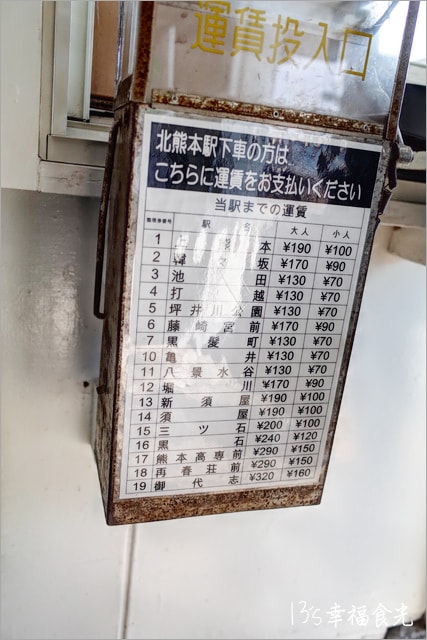 運賃投入口
北熊本駅下車の方は
こちらに運賃をお支払いください
当駅までの運賃
整理券番号 駅 名 大人 小人
1 本 ¥190 ¥100
2 坂 ¥170 ¥90
3 池 田 ¥130 ¥70
4 打 越 ¥130 ¥70
5 坪井川公園 ¥130 ¥70
6 藤崎宮前 ¥170 ¥90
7 黒髪町 ¥130 ¥70
10 亀 井 ¥130 ¥70
11 八景水谷 ¥130 ¥70
12 堀 川 ¥170 ¥90
13 新須屋 ¥190 ¥100
14 須 屋 ¥190 ¥100
15 三ツ石 ¥200 ¥100
16 黒 石 ¥240 ¥120
17 熊本高専前 ¥290 ¥150
18 再春荘前 ¥290 ¥150
19 御代志 ¥320 ¥160
13's幸福食光